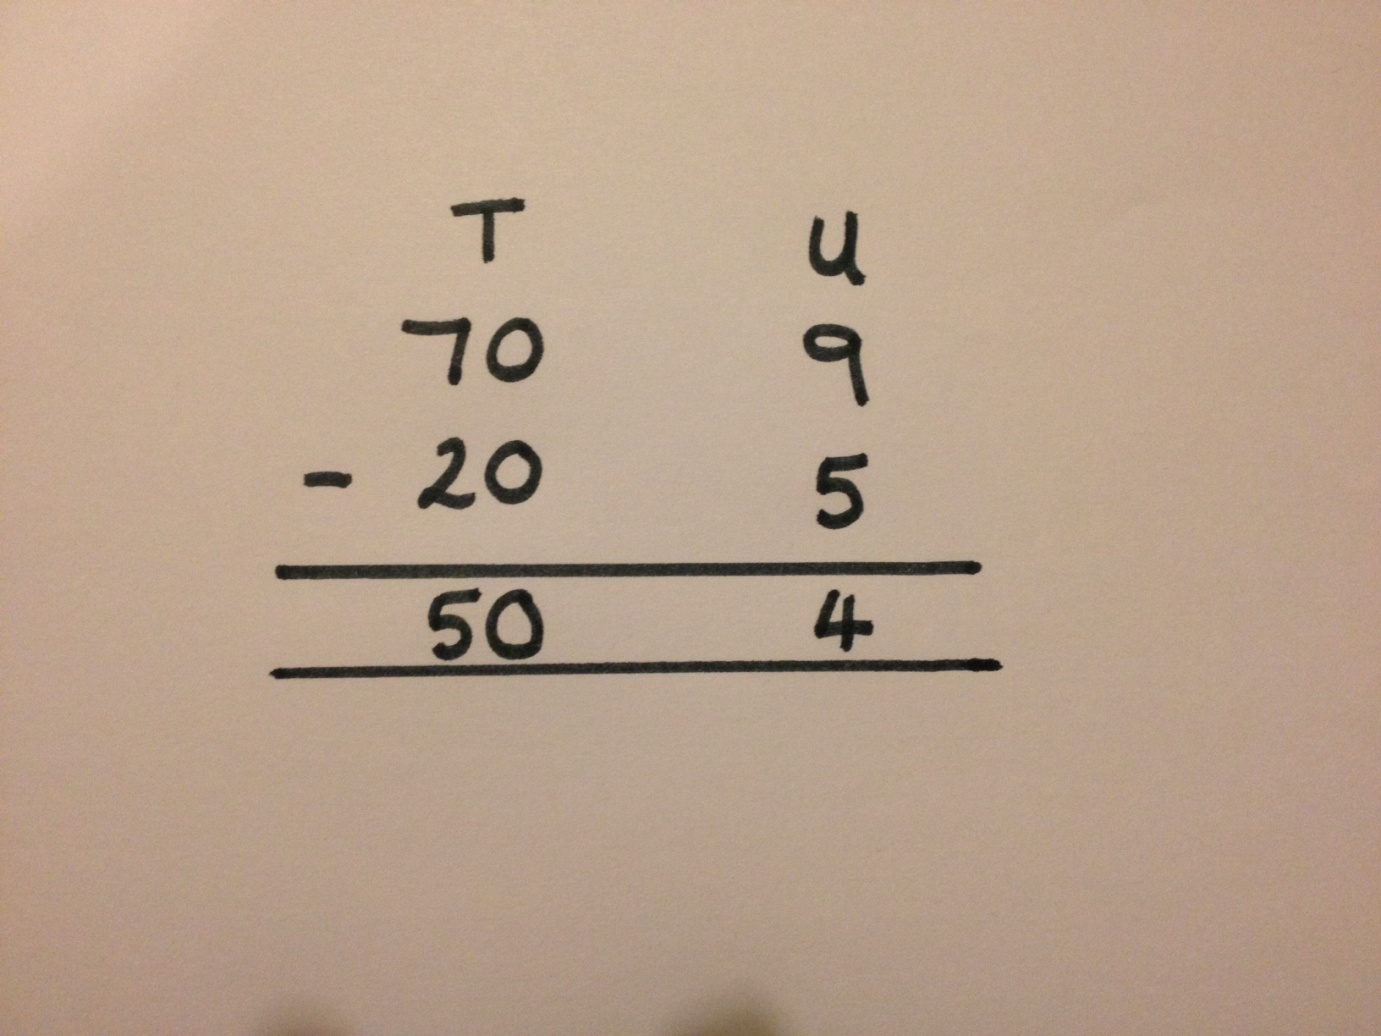 T U
70 9
- 20 5
50 4